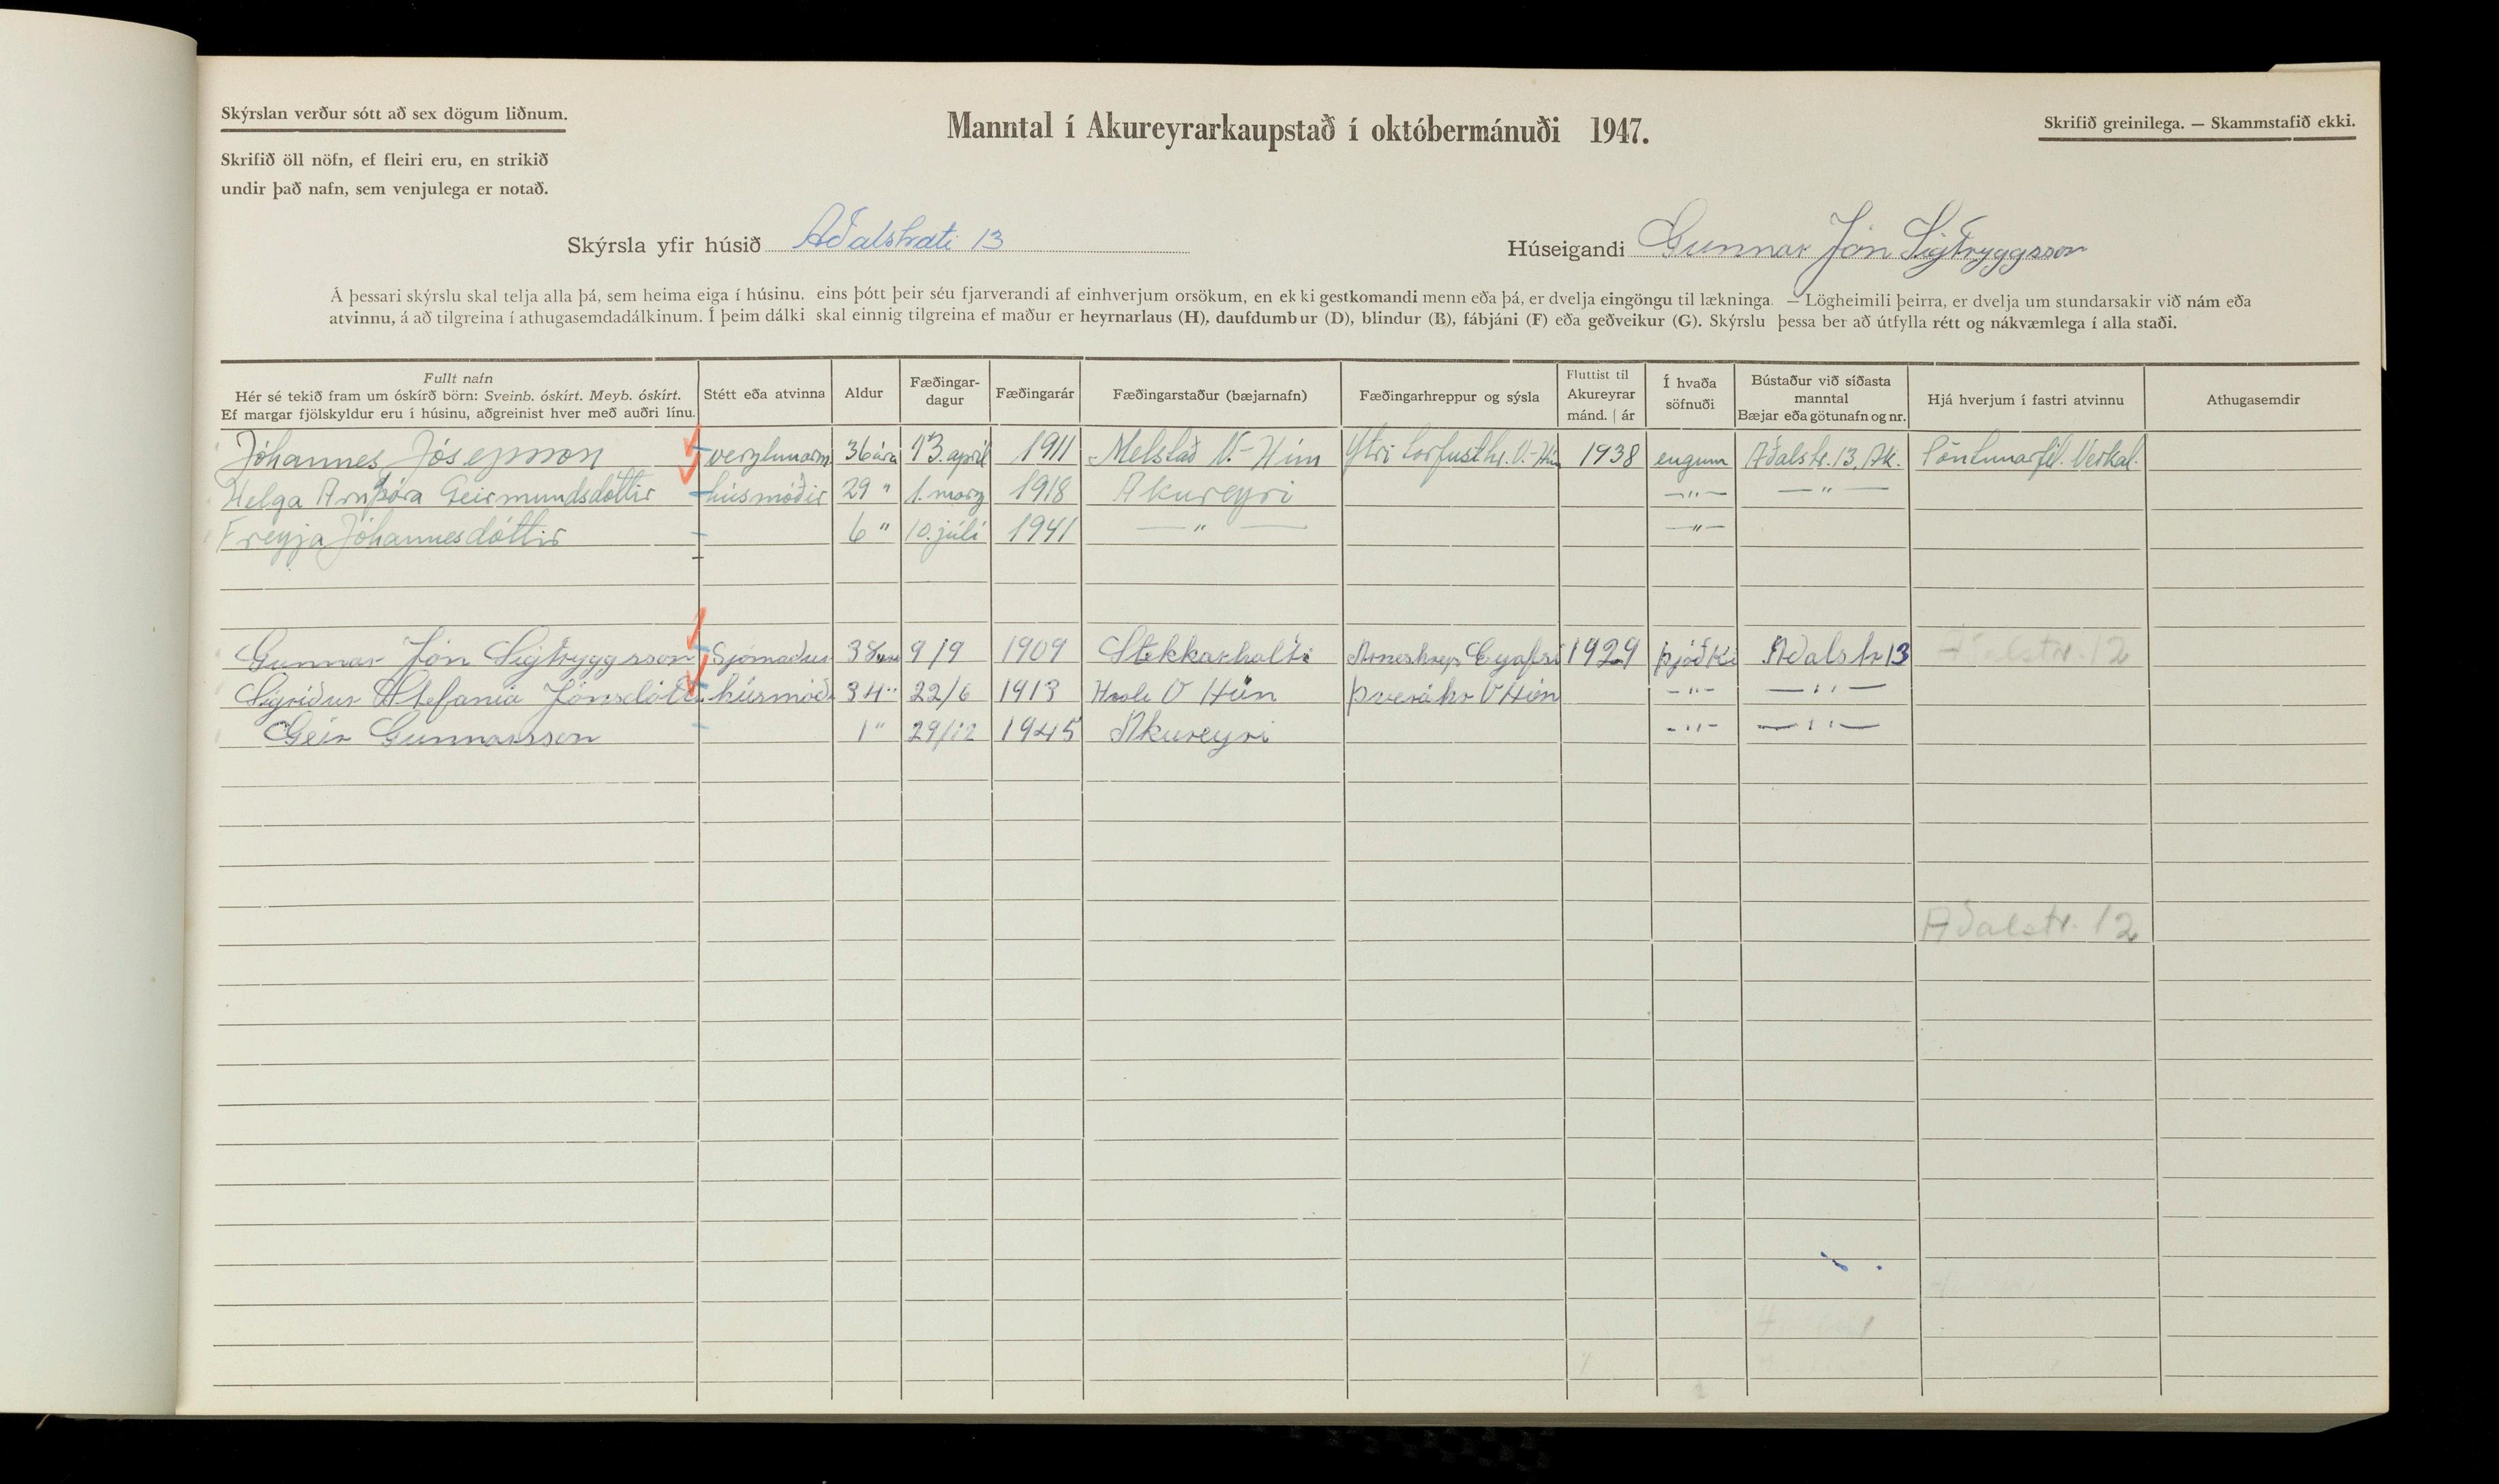 Skýrslan verður sótt að sex dögum liðnum.
Skrifið öll nöfn, ef fleiri eru, en strikið
undir það nafn, sem venjulega er notað.
Manntal í Akureyrarkaupstað í októbermánuði 1947.
Skrifið greinilega. — Skammstafið ekki.
Skýrsla yfir húsið Aðalstræti 13
Húseigandi Gunnar Jón Sigtryggsson
Á þessari skýrslu skal telja alla þá, sem heima eiga í húsinu, eins þótt þeir séu fjarverandi af einhverjum orsökum, en ekki gestkomandi menn eða þá, er dvelja eingöngu til lækninga. — Lögheimili þeirra, er dvelja um stundarsakir við nám eða
atvinnu, á að tilgreina í athugasemdadálkinum. Í þeim dálki skal einnig tilgreina ef maður er heyrnarlaus (H), daufdumbur (D), blindur (B), fábjáni (F) eða geðveikur (G). Skýrslu þessa ber að útfylla rétt og nákvæmlega í alla staði.
Fullt nafn
Hér sé tekið fram um óskírð börn: Sveinb. óskírt. Meyb. óskírt.
Ef margar fjölskyldur eru í húsinu, aðgreinist hver með auðri línu.
Stétt eða atvinna
Aldur
Fæðingar-
dagur
Fæðingarár
Fæðingarstaður (bæjarnafn)
Fæðingarhreppur og sýsla
Fluttist til
Akureyrar
mánd. | ár
Í hvaða
söfnuði
Bústaður við síðasta
manntal
Bæjar eða götunafn og nr.
Hjá hverjum í fastri atvinnu
Athugasemdir
Jóhannes Jósepsson verzlunarm. 36 ára 13. apríl 1911 Melstað V.-Hún Ytri Torfust.hr. V.-Hún 1938 engum Aðalstr. 13, Ak. Pöntunarfél. Verkal.
Helga Arnþóra Geirmundsdóttir húsmóðir 29 " 1. marz 1918 Akureyri —"— —"—
Freyja Jóhannesdóttir 6 " 10. júlí 1941 —"— —"—
Gunnar Jón Sigtryggsson Sjómaður 38 9/9 1909 Stekkarholti 1929 þjóðki Aðalstr 13 Aðalstr. 12
Sigríður Stefanía Jónsdótt húsmóð 34 " 22/6 1913 V Hún Þverárhr V Hún —"— —"—
Geir Gunnarsson 1 " 29/12 1945 Akureyri —"— —"—
Aðalstr. 12